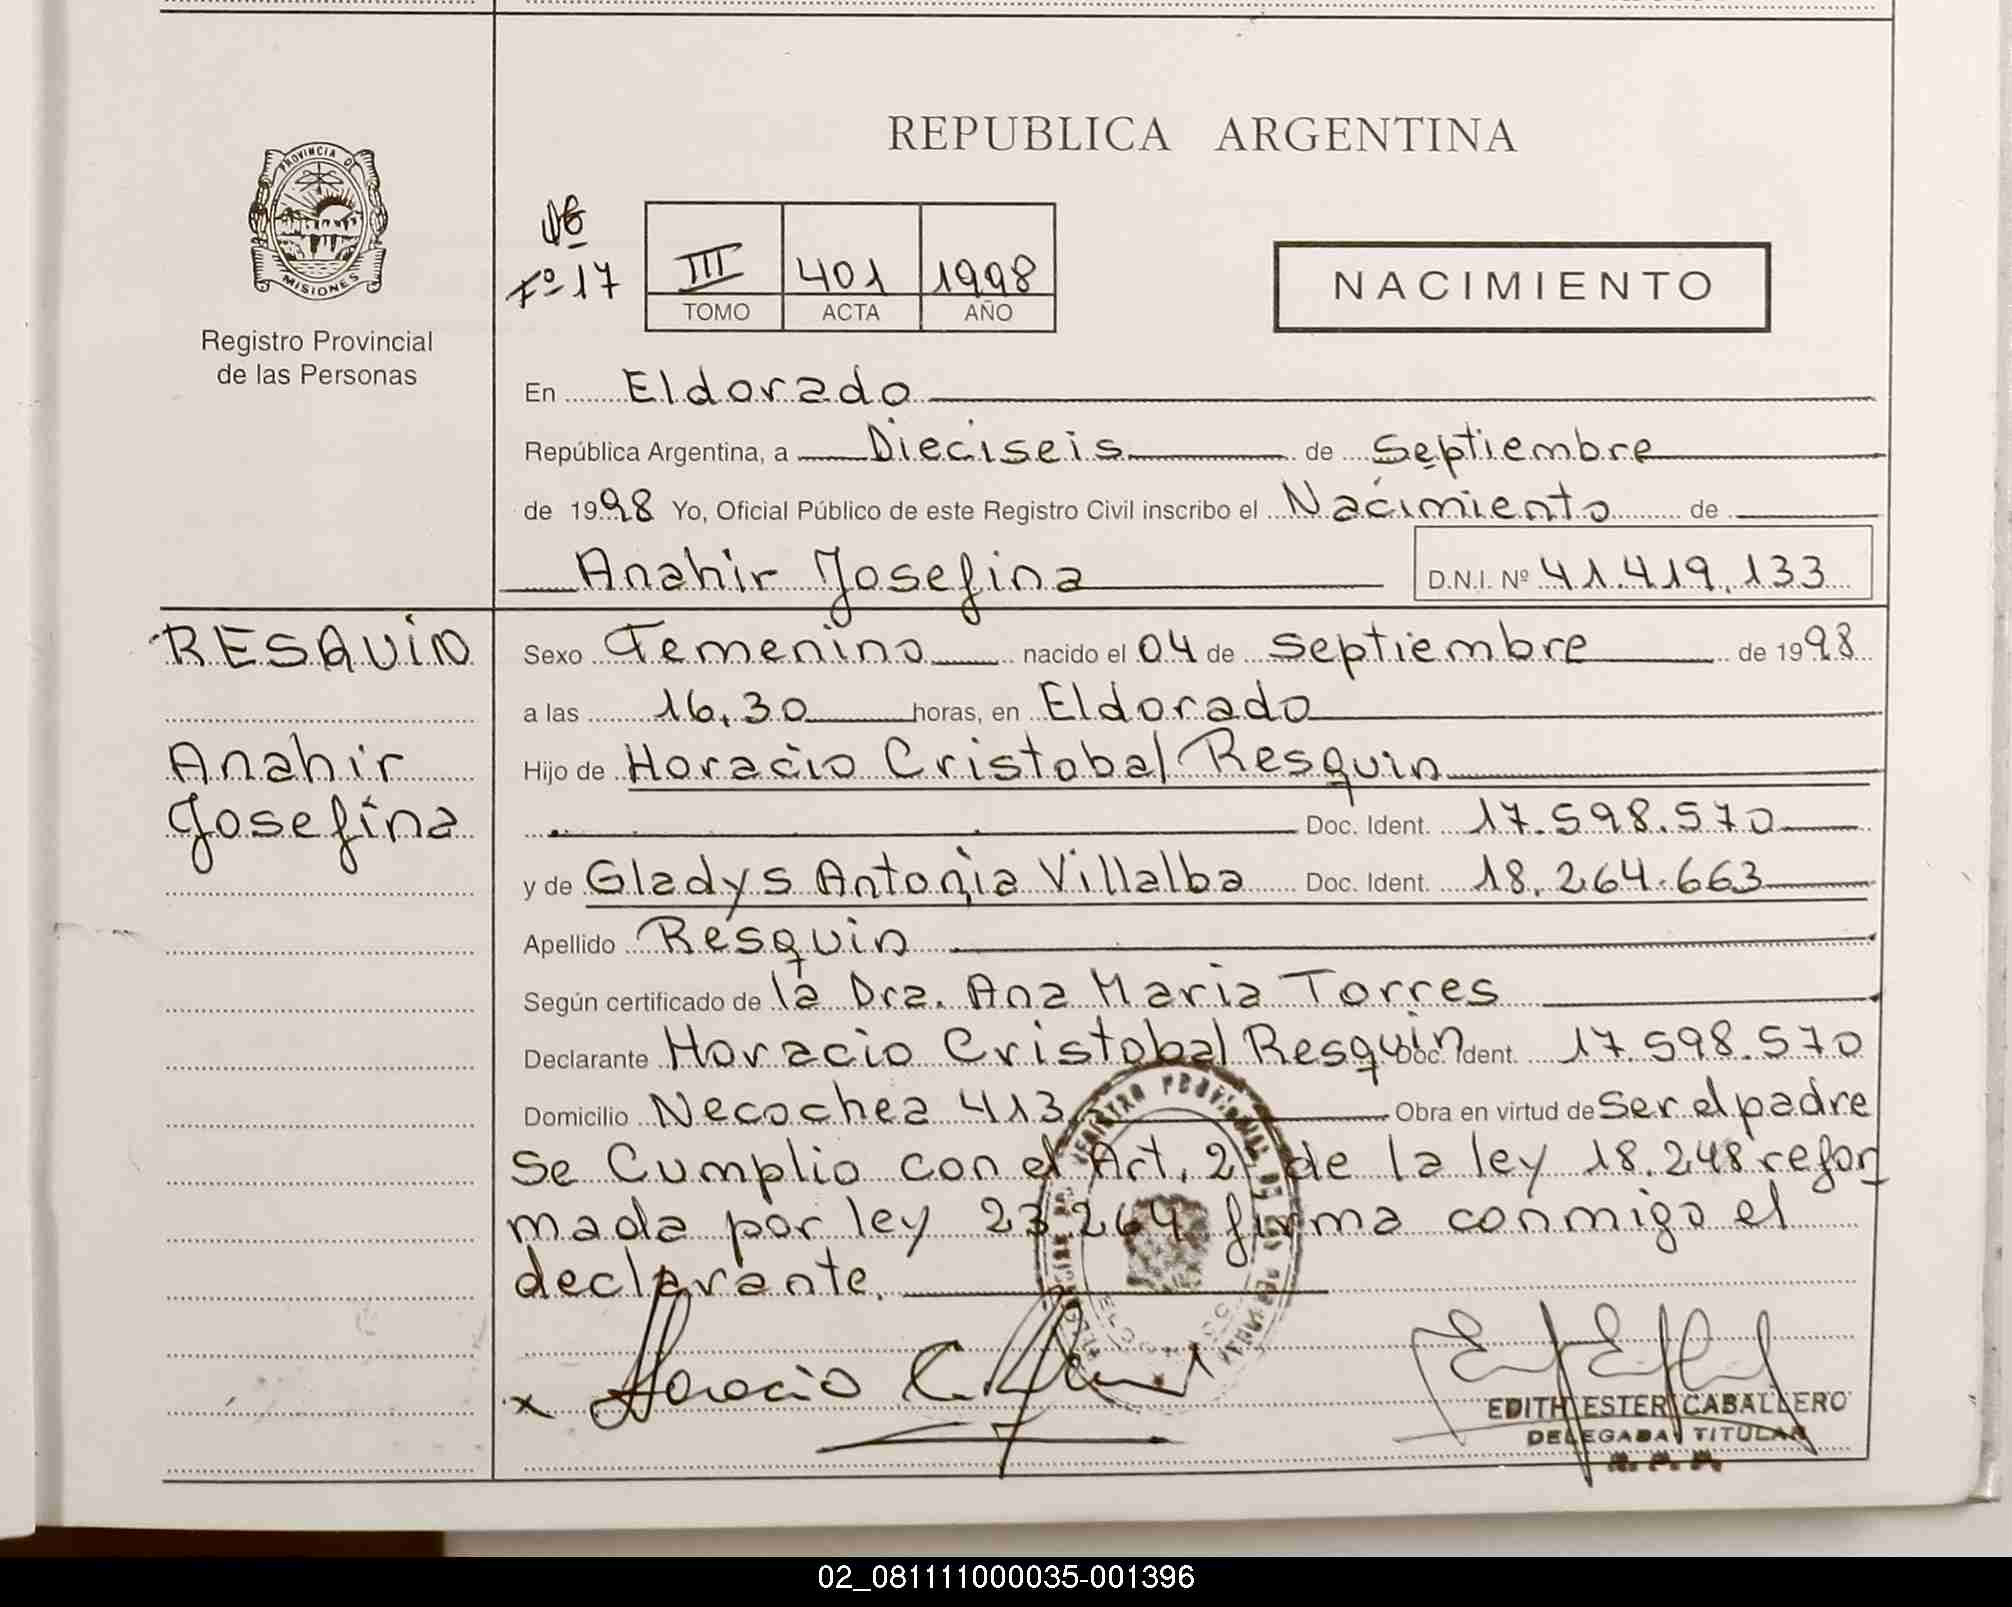 REPUBLICA ARGENTINA
PROVINCIA DE
MISIONES
Registro Provincial
de las Personas
Fº 17
III 401 1998
TOMO ACTA AÑO
NACIMIENTO
En Eldorado
República Argentina, a Dieciseis de Septiembre
de 1998 Yo, Oficial Público de este Registro Civil inscribo el Nacimiento de
Anahir Josefina D.N.I. Nº 41.419.133
RESQUIN
Anahir
Josefina
Sexo Femenino nacido el 04 de Septiembre de 1998
a las 16,30 horas, en Eldorado
Hijo de Horacio Cristobal Resquin
Doc. Ident. 17.598.570
y de Gladys Antonia Villalba Doc. Ident. 18.264.663
Apellido Resquin
Según certificado de la Dra. Ana Maria Torres
Declarante Horacio Cristobal Resquin Doc. Ident. 17.598.570
Domicilio Necochea 413 Obra en virtud de Ser el padre
Se Cumplio con el Art. 2 de la ley 18.248 refor
mada por ley 23.264 firma conmigo el
declarante.
x Horacio C.
EDITH ESTER CABALLERO
DELEGADA TITULAR
R. P. P.
02_081111000035-001396